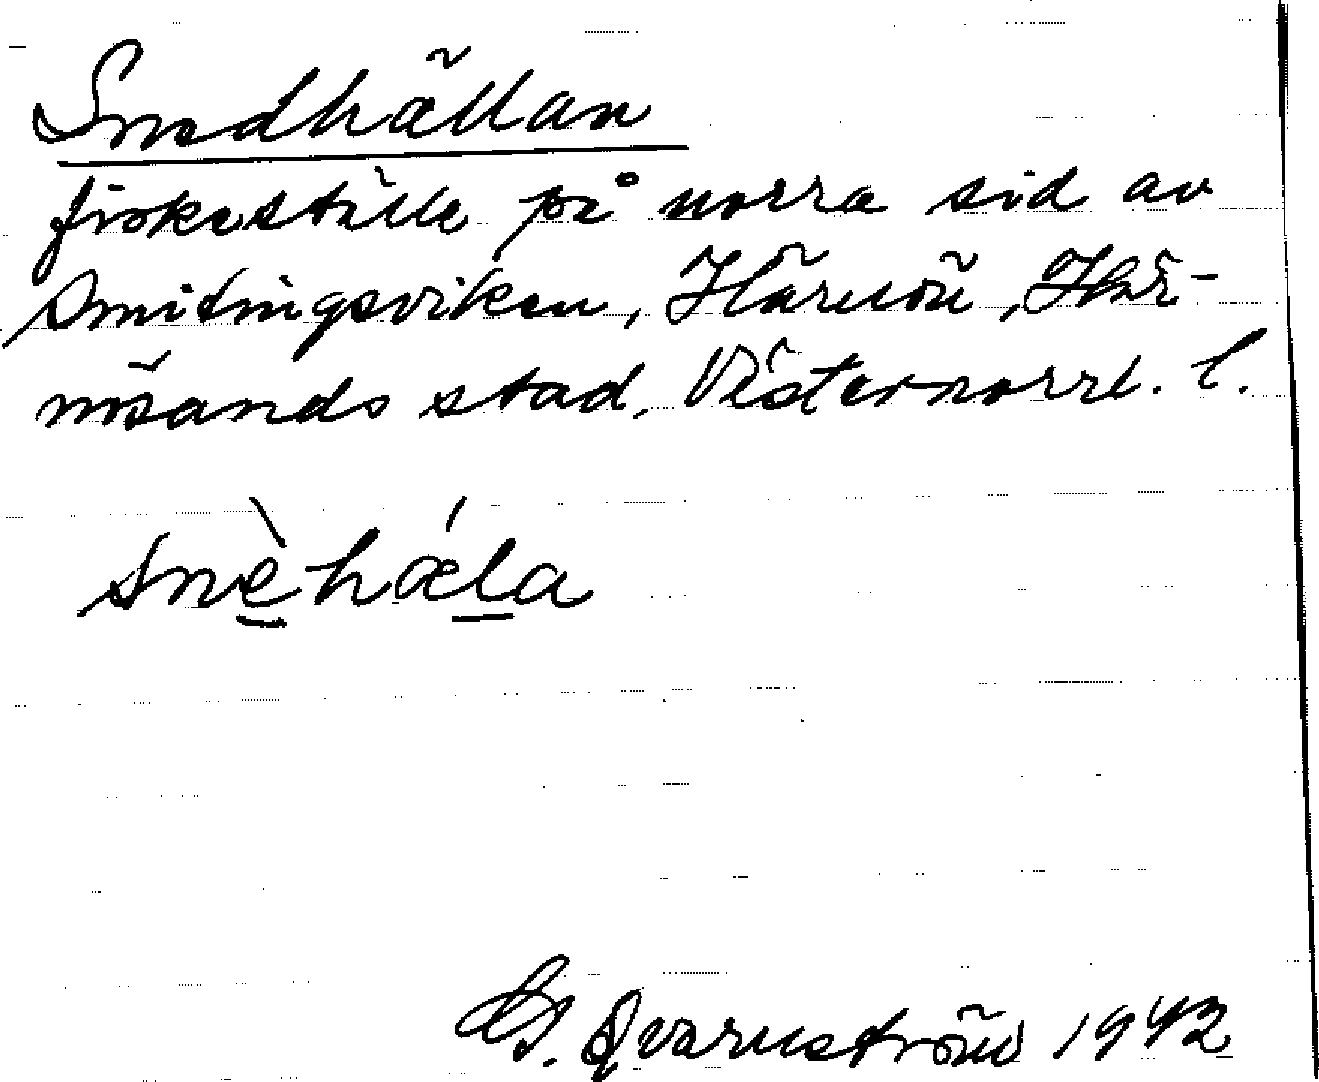 Smedhällan
fiskeställe på norra sid av
Smitingsviken, Härnön, Här-
nösands stad, Västernorrl. l.
smèhǽla
G. Qvarnström 1942